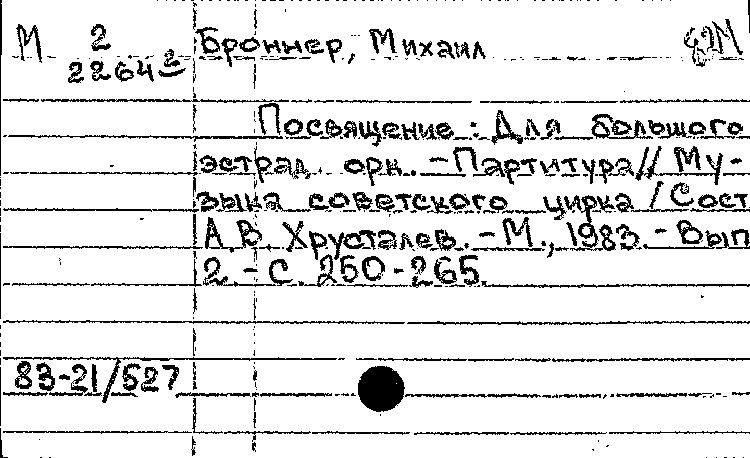 М 2 Броннер, Михаил
22642
Посвящение: Для большого
эстрад. орк. - Партитура // Му-
зыка советского цирка / Сост
А.В. Хрусталев. - М., 1983. - Вып
2. - С. 250-265.
83-21/527